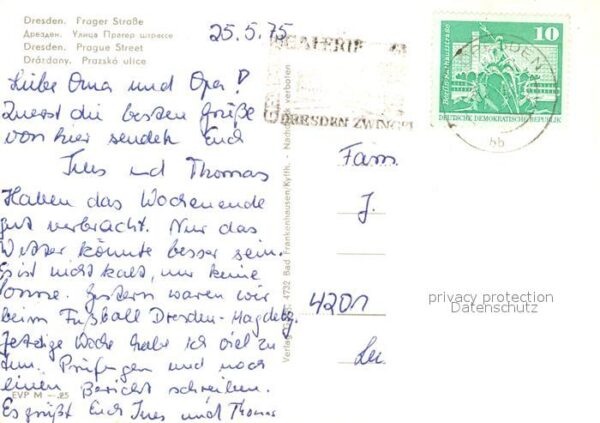 Dresden. Prager Straße
Дрезден. Улица Прагер штрассе
Dresden. Prague Street
Drážďany. Pražská ulice
25.5.75
GALERIE
DRESDEN ZWINGER
DRESDEN
bb
10
DEUTSCHE DEMOKRATISCHE REPUBLIK
Liebe Oma und Opa!
Zuerst die besten Grüße
von hier sendet Euch
Ines und Thomas
Haben das Wochenende
gut verbracht. Nur das
Wetter könnte besser sein.
Es ist nicht kalt, nur keine
Sonne. Gestern waren wir
beim Fußball Dresden-Magdebg.
Jetzige Woche habe ich viel zu
tun. Prüfungen und noch
einen Bericht schreiben.
Es grüßt Euch Ines und Thomas
EVP M –.25
4732 Bad Frankenhausen/Kyffh. · Nachdruck verboten
Fam.
J.
4201
privacy protection
Datenschutz